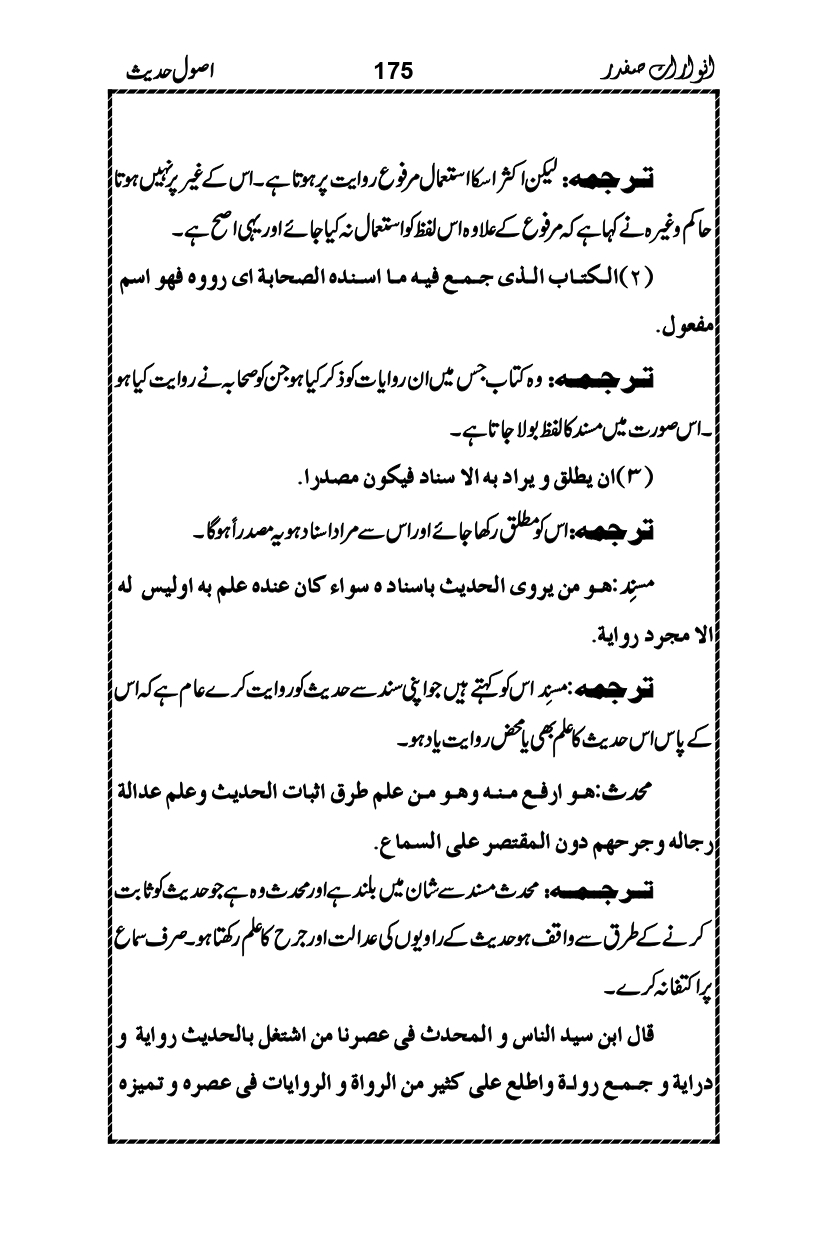 انوارات صفدر 175 اصول حدیث
ترجمہ: لیکن اکثر اسکا استعمال مرفوع روایت پر ہوتا ہے۔ اس کے غیر پر نہیں ہوتا
حاکم وغیرہ نے کہا ہے کہ مرفوع کے علاوہ اس لفظ کو استعمال نہ کیا جائے اور یہی اصح ہے۔
(۲) الکتاب الذی جمع فیہ ما اسندہ الصحابة ای رووہ فھو اسم
مفعول.
ترجمہ: وہ کتاب جس میں ان روایات کو ذکر کیا ہو جن کو صحابہ نے روایت کیا ہو
۔ اس صورت میں مسند کا لفظ بولا جاتا ہے۔
(۳) ان یطلق و یراد بہ الا سناد فیکون مصدرا.
ترجمہ: اس کو مطلق رکھا جائے اور اس سے مراد اسناد ہو یہ مصدراً ہوگا۔
مسنِد: ھو من یروی الحدیث باسناد ہ سواء کان عندہ علم بہ اولیس لہ
الا مجرد روایة.
ترجمہ: مسنِد اس کو کہتے ہیں جو اپنی سند سے حدیث کو روایت کرے عام ہے کہ اس
کے پاس اس حدیث کا علم بھی یا محض روایت یاد ہو۔
محدث: ھو ارفع منہ وھو من علم طرق اثبات الحدیث وعلم عدالة
رجالہ وجرحھم دون المقتصر علی السماع.
ترجمہ: محدث مسند سے شان میں بلند ہے اور محدث وہ ہے جو حدیث کو ثابت
کرنے کے طرق سے واقف ہو حدیث کے راویوں کی عدالت اور جرح کا علم رکھتا ہو۔ صرف سماع
پر اکتفا نہ کرے۔
قال ابن سید الناس و المحدث فی عصرنا من اشتغل بالحدیث روایة و
درایة و جمع رولة واطلع علی کثیر من الرواة و الروایات فی عصرہ و تمیزہ